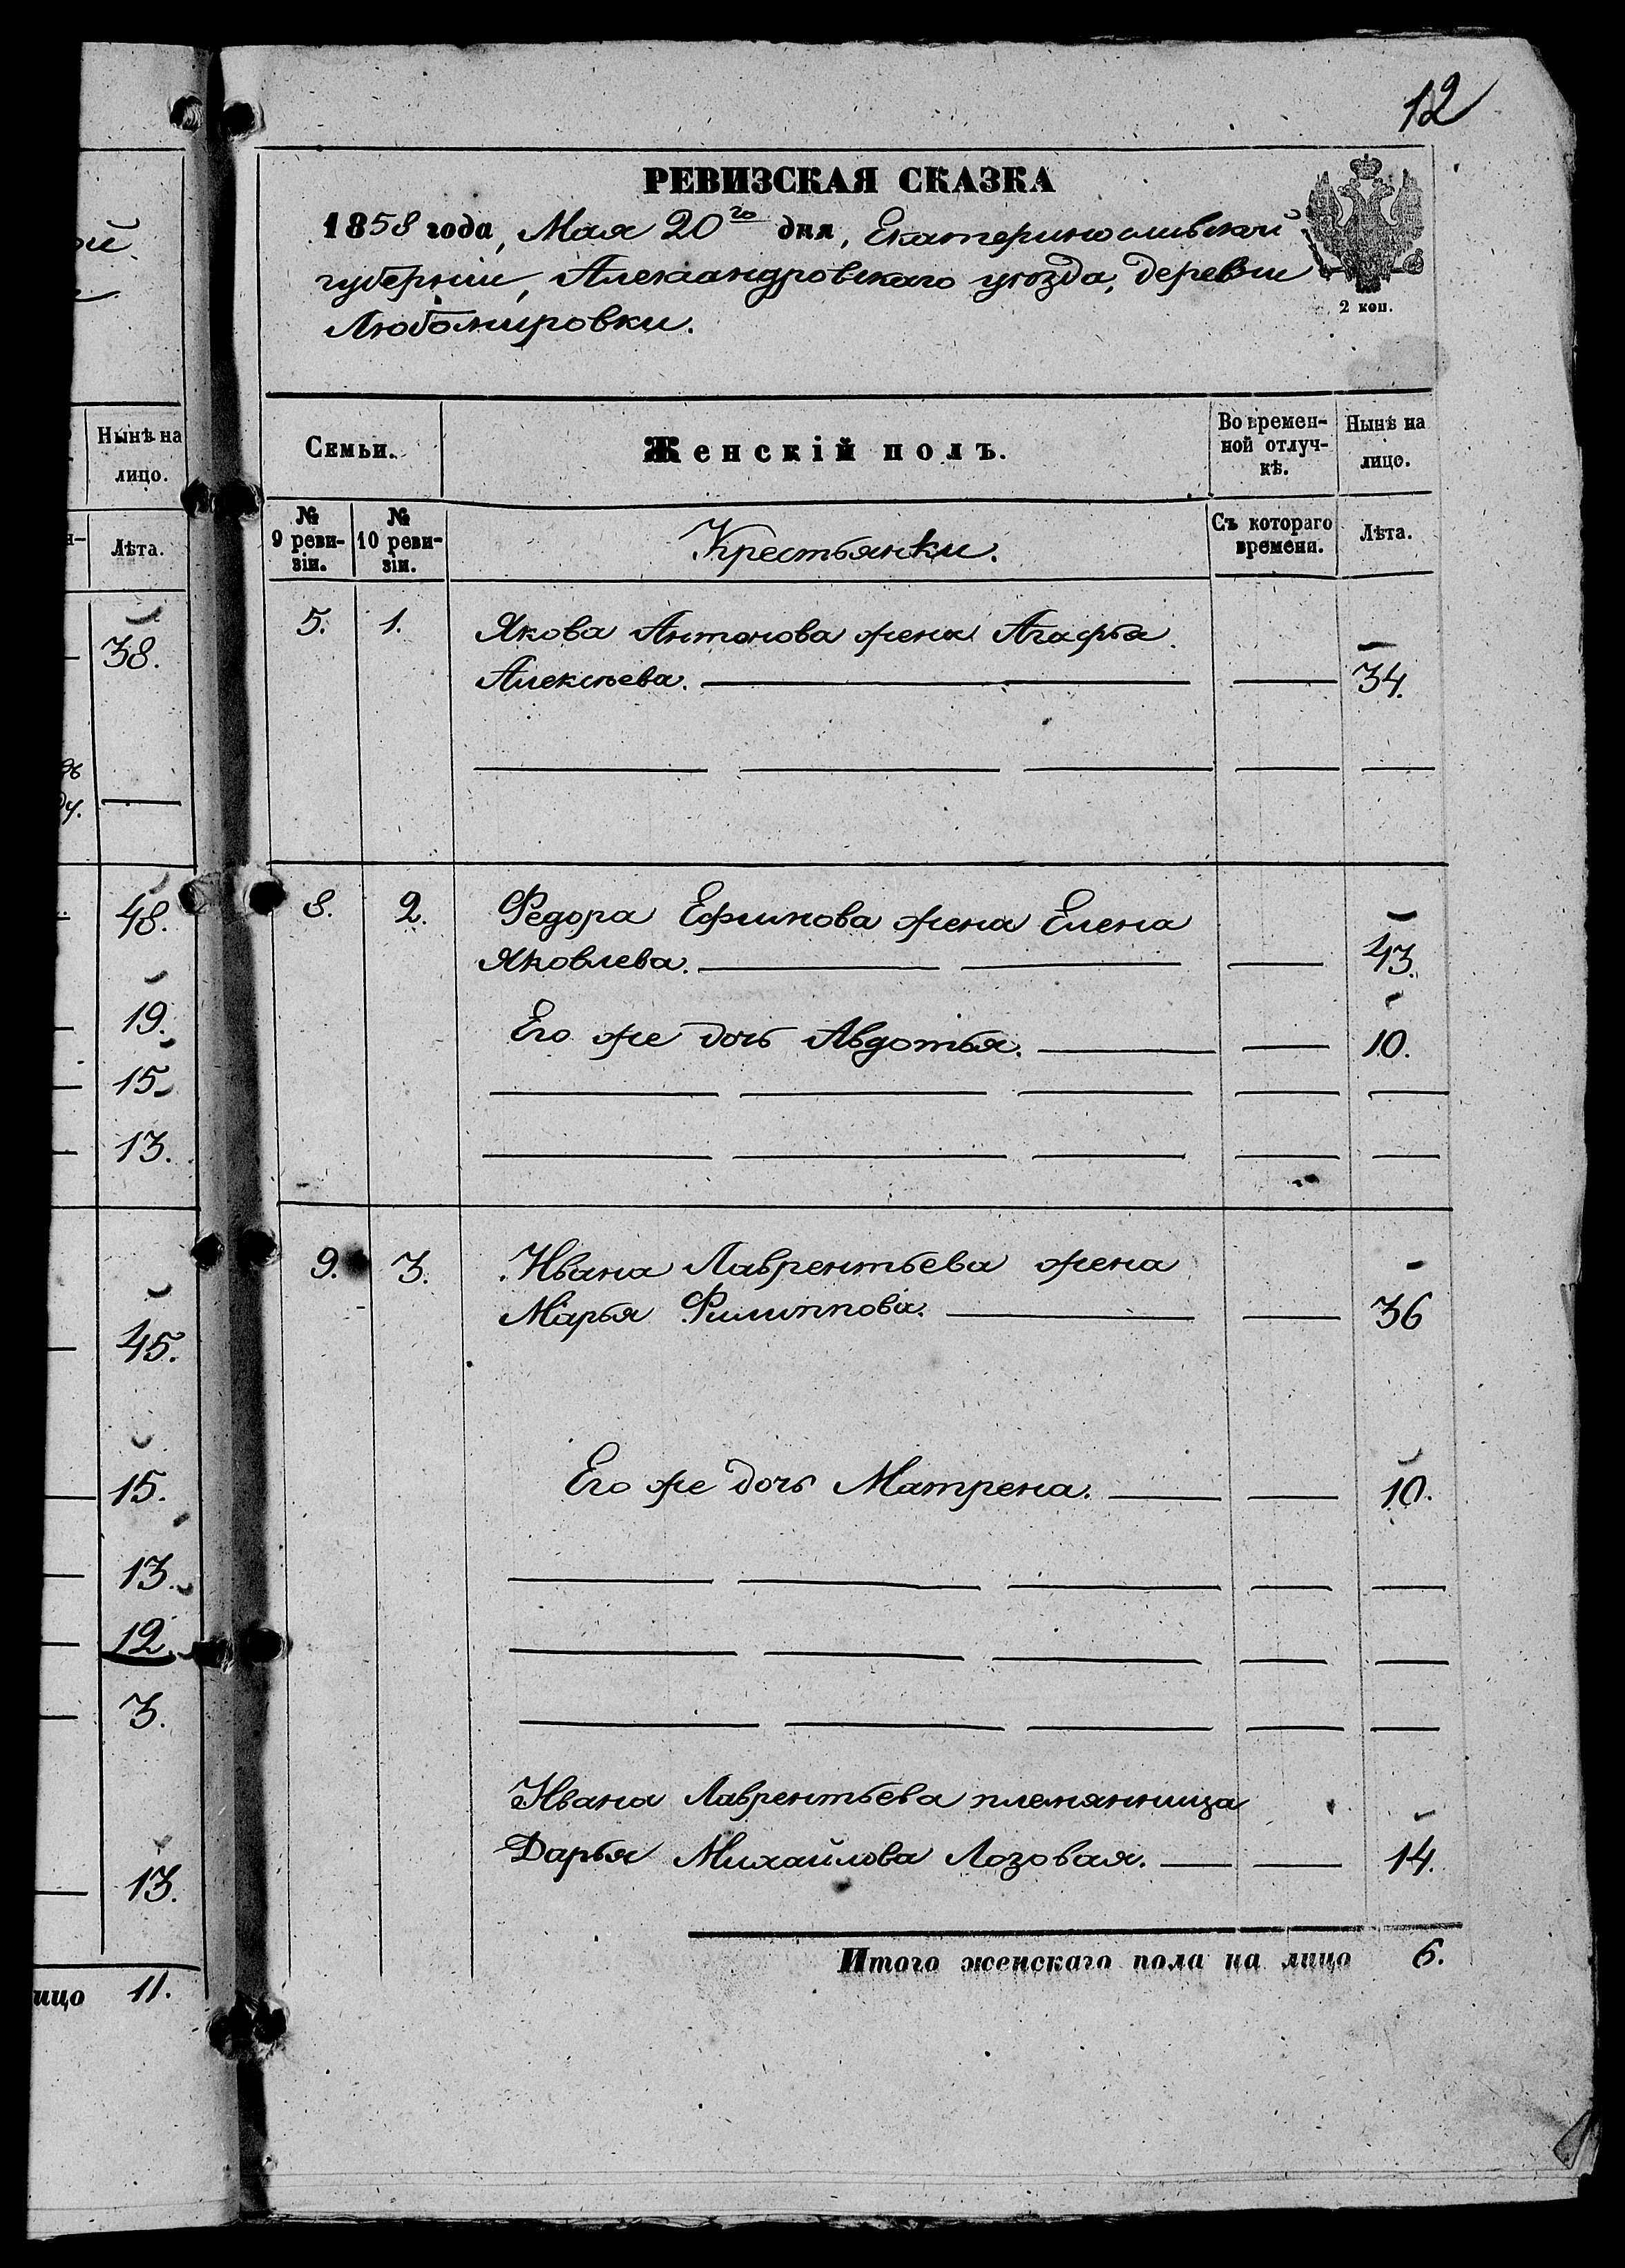 12
РЕВИЗСКАЯ СКАЗКА
1858 года, Мая 20го дня, Екатеринославской
губерніи, Александровскаго уѣзда, деревни
Любомировки.
2 коп.
Нынѣ на
лицо.
Лѣта.
38.
48.
19.
15.
13.
45.
15.
13.
12.
3.
13.
11.
Семьи.
Женскій полъ.
Во времен-
ной отлуч-
кѣ.
Нынѣ на
лицо.
№
9 реви-
зіи.
№
10 реви-
зіи.
Крестьянки.
Съ котораго
времени.
Лѣта.
5. 1. Якова Антонова жена Агафья
Алексѣева. 34.
8. 2. Федора Ефимова жена Елена
Яковлева. 43.
Его же дочь Авдотья. 10.
9. 3. Ивана Лаврентьева жена
Марья Филиппова. 36
Его же дочь Матрена. 10.
Ивана Лаврентьева племянница
Дарья Михайлова Лозовая. 14.
Итого женскаго пола на лицо 6.